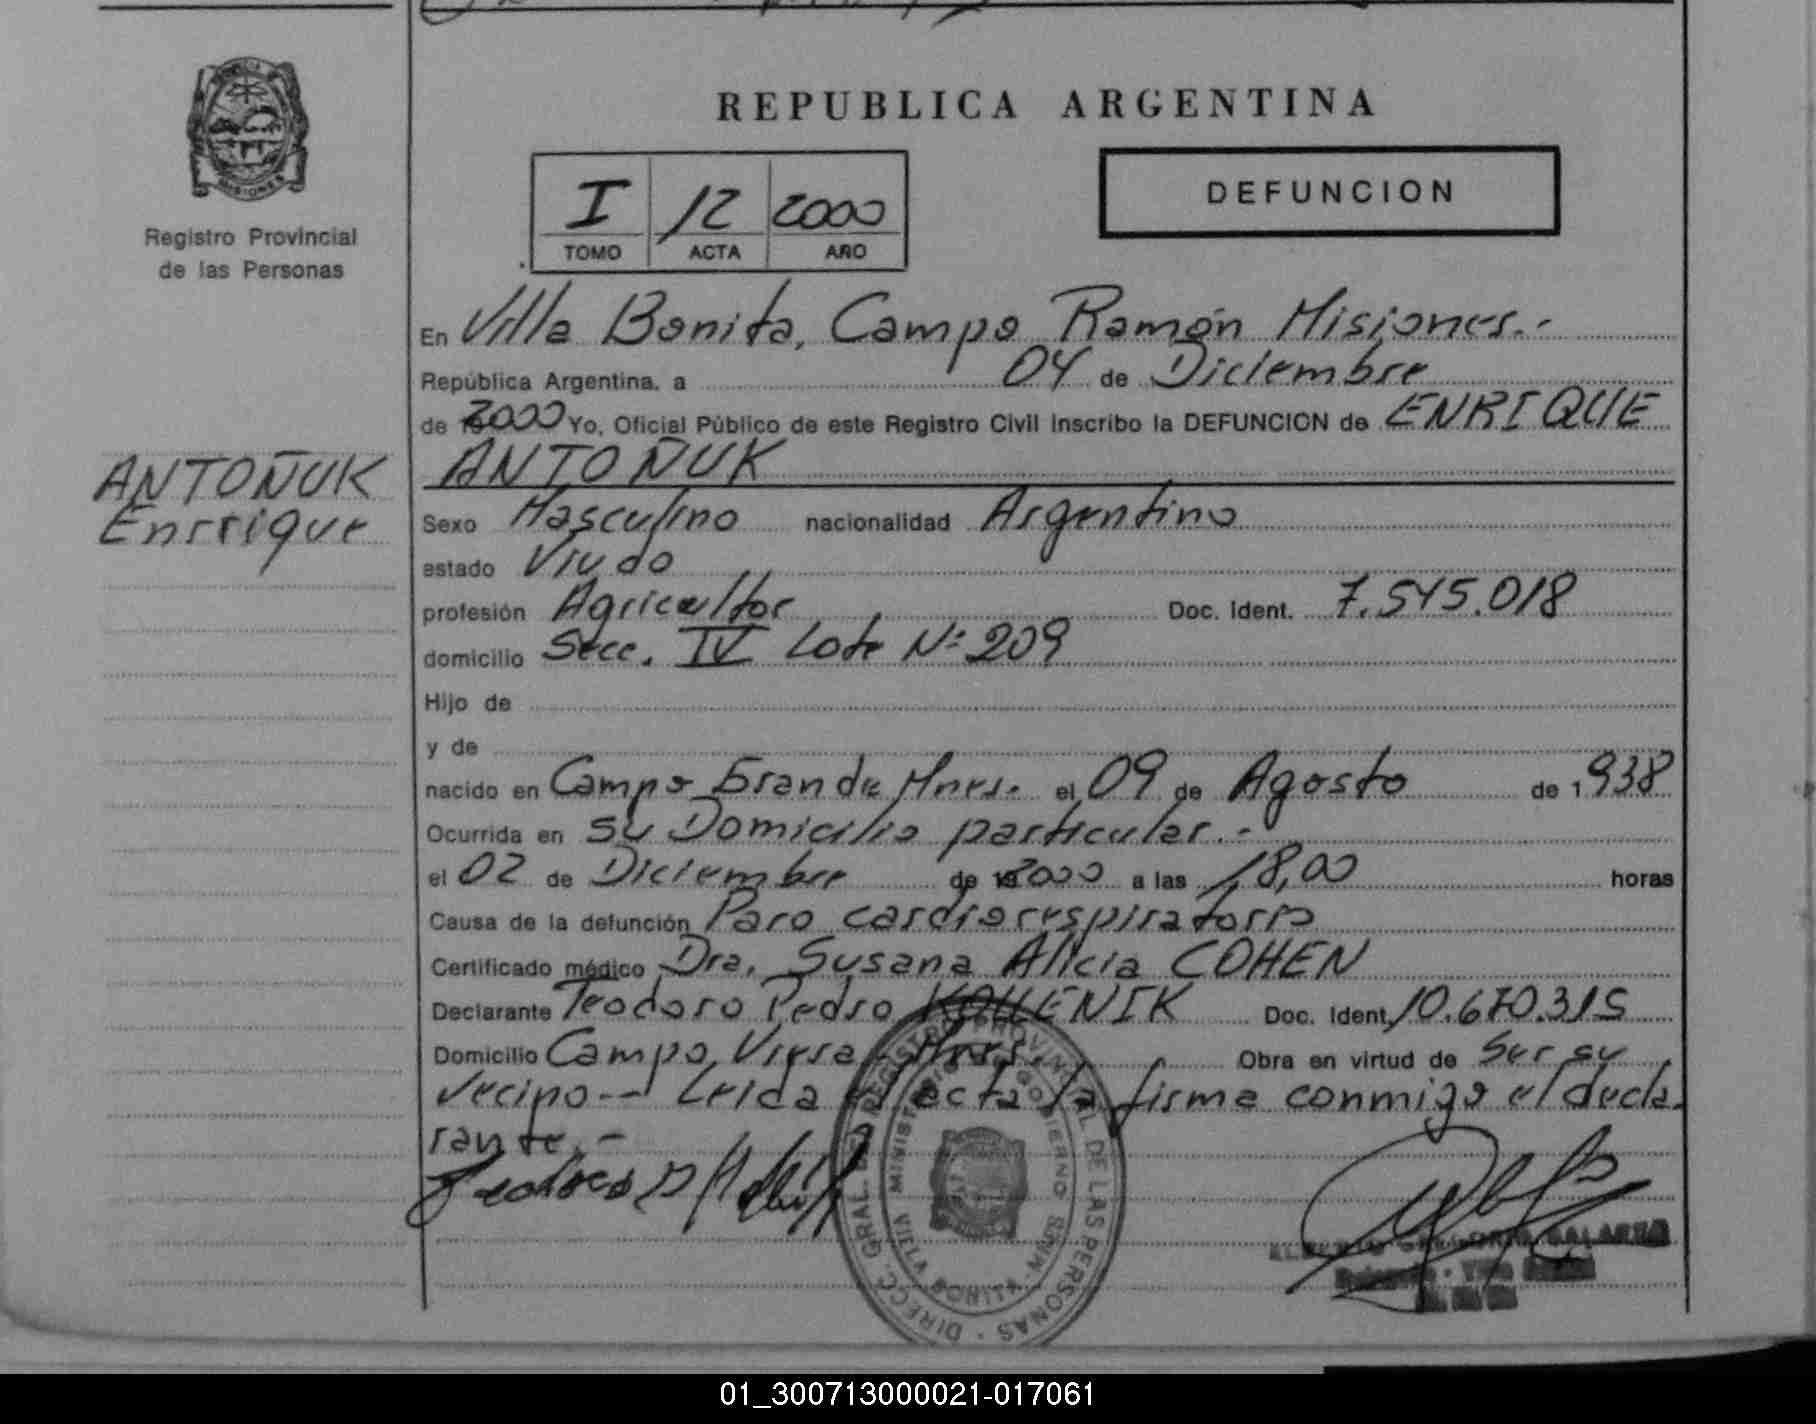 REPUBLICA ARGENTINA
I 12 2000
TOMO ACTA AÑO
DEFUNCION
MISIONES
Registro Provincial
de las Personas
ANTOÑUK
Enrrique
En Villa Bonita, Campo Ramón Misiones.-
República Argentina, a 04 de Diciembre
de 2000 Yo, Oficial Público de este Registro Civil Inscribo la DEFUNCION de ENRIQUE
ANTOÑUK
Sexo Masculino nacionalidad Argentino
estado Viudo
profesión Agricultor Doc. Ident. 7.545.018
domicilio Secc. IV Lote Nº 209
Hijo de
y de
nacido en Campo Grande Mnes. el 09 de Agosto de 1938
Ocurrida en su Domicilio particular.-
el 02 de Diciembre de 2000 a las 18,00 horas
Causa de la defunción Paro cardiorespiratorio
Certificado médico Dra. Susana Alicia COHEN
Declarante Teodoro Pedro Doc. Ident. 10.670.315
Domicilio Campo Viera - Mnes. Obra en virtud de Ser su
vecino-- Leida el acta la firma conmigo el decla-
rante.-
DIRECC. GRAL. DEL REGISTRO PROVINCIAL DE LAS PERSONAS
MINISTERIO GOBIERNO
VILLA BONITA - MNES.
01_300713000021-017061